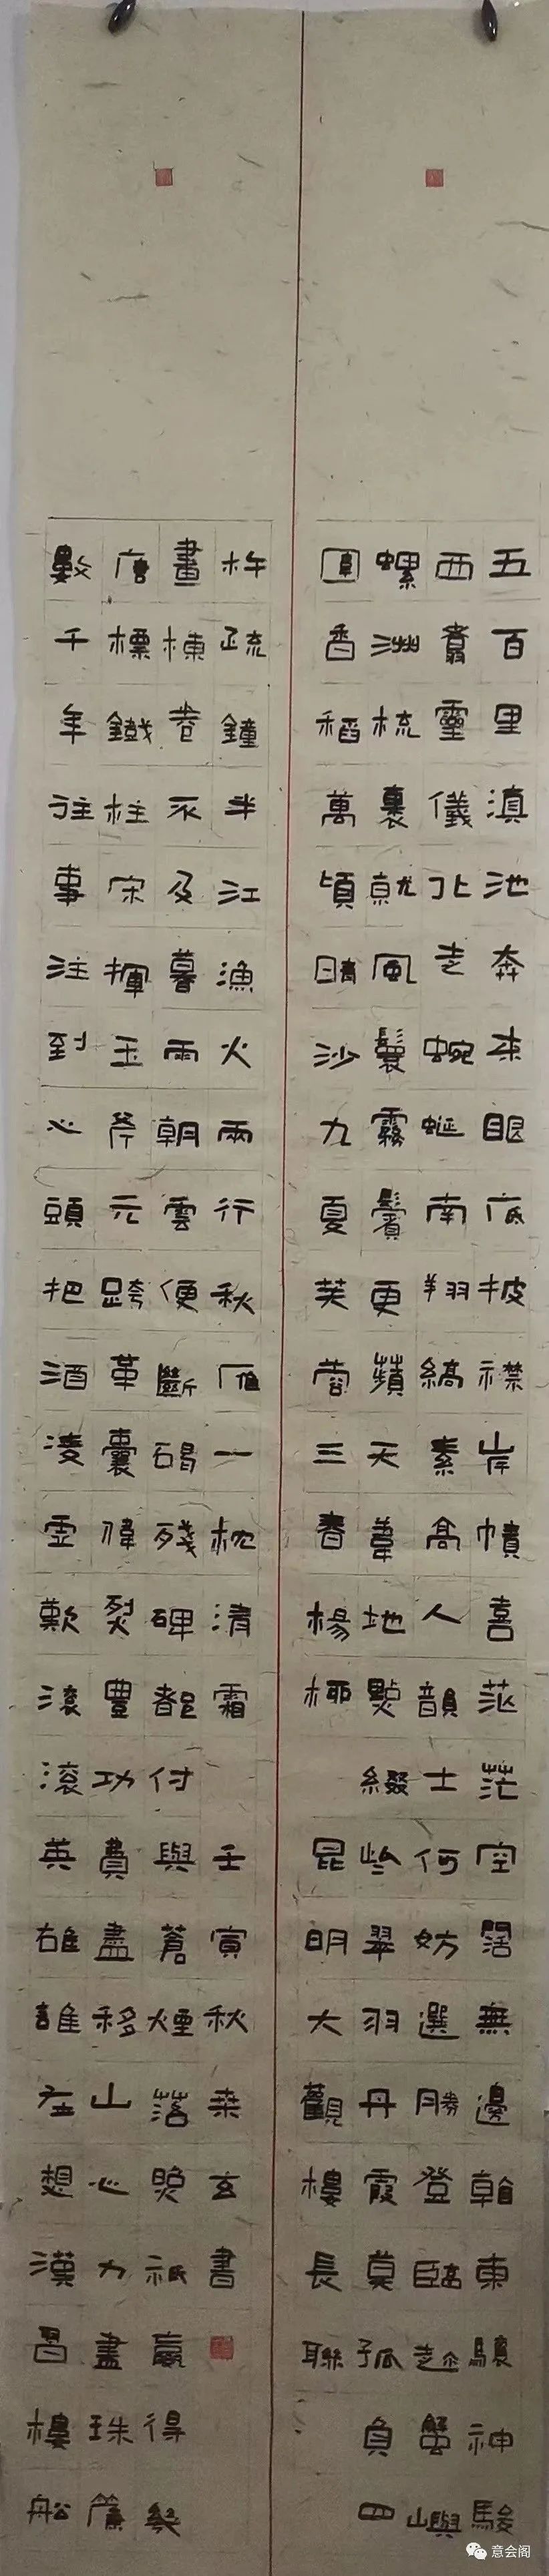 五百里滇池奔来眼底披襟岸幘喜茫茫空闊無邊看東驤神駿
西翥靈儀北走蜿蜒南翔縞素高人韻士何妨選勝登臨趁蟹嶼
螺洲梳裹就風鬟霧鬢更蘋天葦地點綴些翠羽丹霞莫孤負四
圍香稻萬頃晴沙九夏芙蓉三春楊柳
昆明大觀樓長聯
數千年往事注到心頭把酒凌虛歎滾滾英雄誰在想漢習樓船
唐標鐵柱宋揮玉斧元跨革囊偉烈豐功費盡移山心力盡珠簾
畫棟卷不及暮雨朝雲便斷碣殘碑都付與蒼煙落照祇贏得幾
杵疏鐘半江漁火兩行秋雁一枕清霜
壬寅秋桑玄書
意会阁